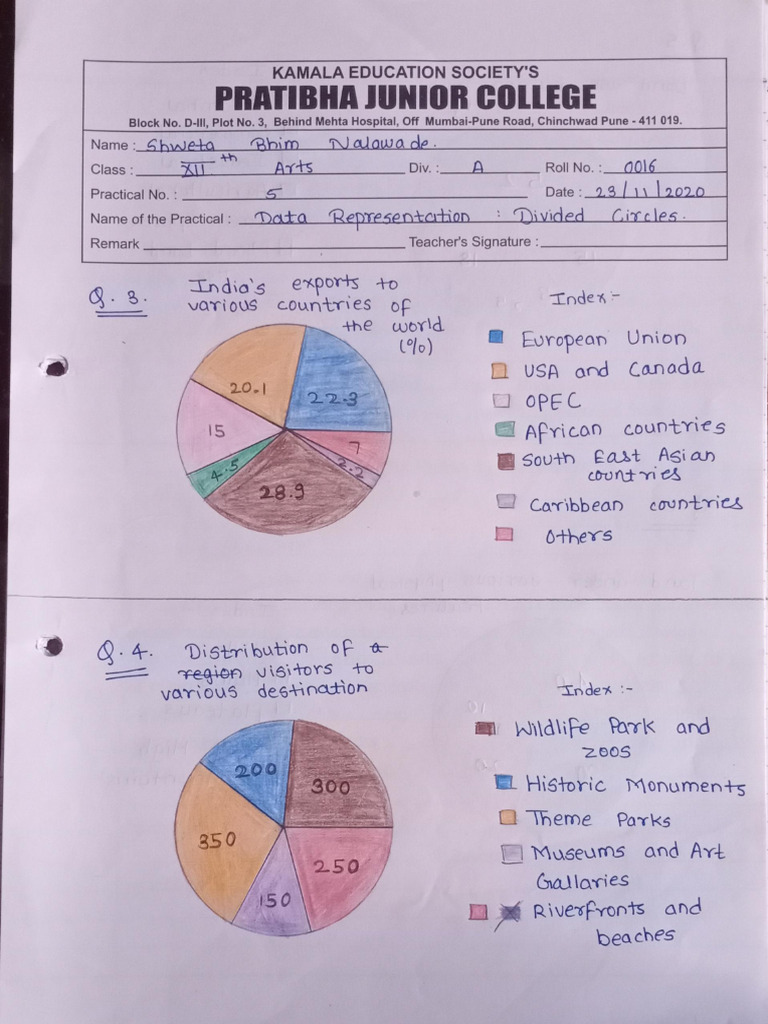 KAMALA EDUCATION SOCIETY'S
PRATIBHA JUNIOR COLLEGE
Block No. D-III, Plot No. 3, Behind Mehta Hospital, Off Mumbai-Pune Road, Chinchwad Pune - 411 019.
Name : Shweta Bhim Nalawade.
Class : XII th Arts Div. : A Roll No. : 0016
Practical No. : 5 Date : 23/11/2020
Name of the Practical : Data Representation : Divided Circles.
Remark Teacher's Signature :
Q. 3. India's exports to
various countries of
the world
(%)
Index :-
European Union
USA and Canada
OPEC
African countries
South East Asian
countries
Caribbean countries
Others
20.1
22.3
15
7
2.2
4.5
28.9
Q. 4. Distribution of a
region visitors to
various destination
Index :-
Wildlife Park and
zoos
Historic Monuments
Theme Parks
Museums and Art
Gallaries
Riverfronts and
beaches
200
300
350
250
150